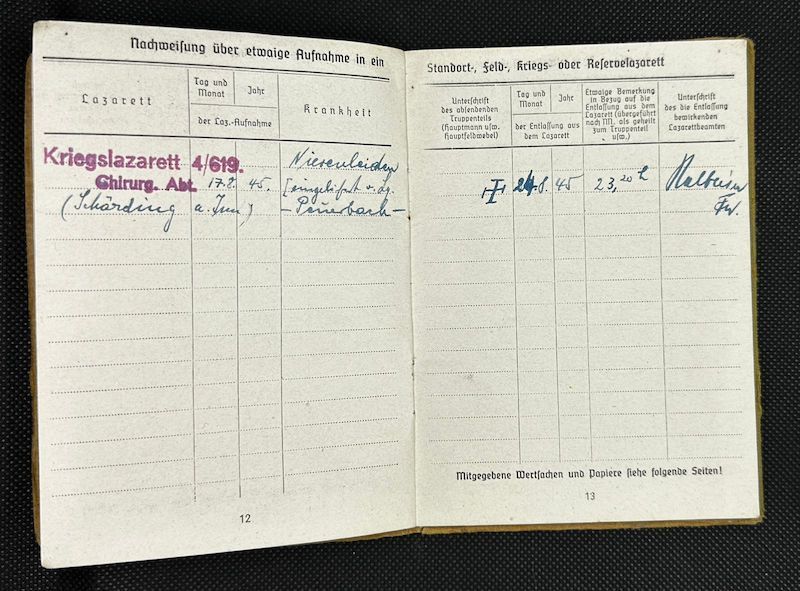 Nachweisung über etwaige Aufnahme in ein
Lazarett
Tag und
Monat
Jahr
der Laz.-Aufnahme
Krankheit
Kriegslazarett 4/619.
Chirurg. Abt. 17.8. 45.
(Schärding a. Inn)
Nierenleiden
[eingeliefert v.
- Peuerbach -
12
Standort-, Feld-, Kriegs- oder Reservelazarett
Unterschrift
des absendenden
Truppenteils
(Hauptmann usw.
Hauptfeldwebel)
Tag und
Monat
Jahr
der Entlassung aus
dem Lazarett
Etwaige Bemerkung
in Bezug auf die
Entlassung aus dem
Lazarett (übergeführt
nach NN. als geheilt
zum Truppenteil
usw.)
Unterschrift
des die Entlassung
bewirkenden
Lazarettbeamten
24.8. 45 23,20 h
Fw.
Mitgegebene Wertsachen und Papiere siehe folgende Seiten!
13